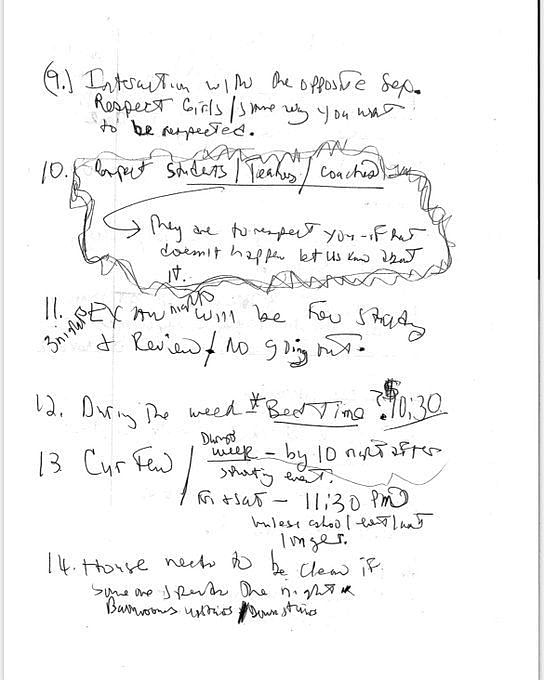 (9.) Interaction with the opposite sex.
Respect Girls / same way you want
to be respected.
10. Respect Students / Teachers / Coaches
They are to respect you - if that
doesn't happen let us know about
it.
11. nights will be for study
& Review / No going out.
12. During the week * Bed Time 10:30
13 Curfew / During
week - by 10 night after
sporting event.
Fri & Sat - 11:30 PM
unless school event last
longer.
14. House needs to be clean if
someone spends the night
Bathrooms upstairs / Downstairs